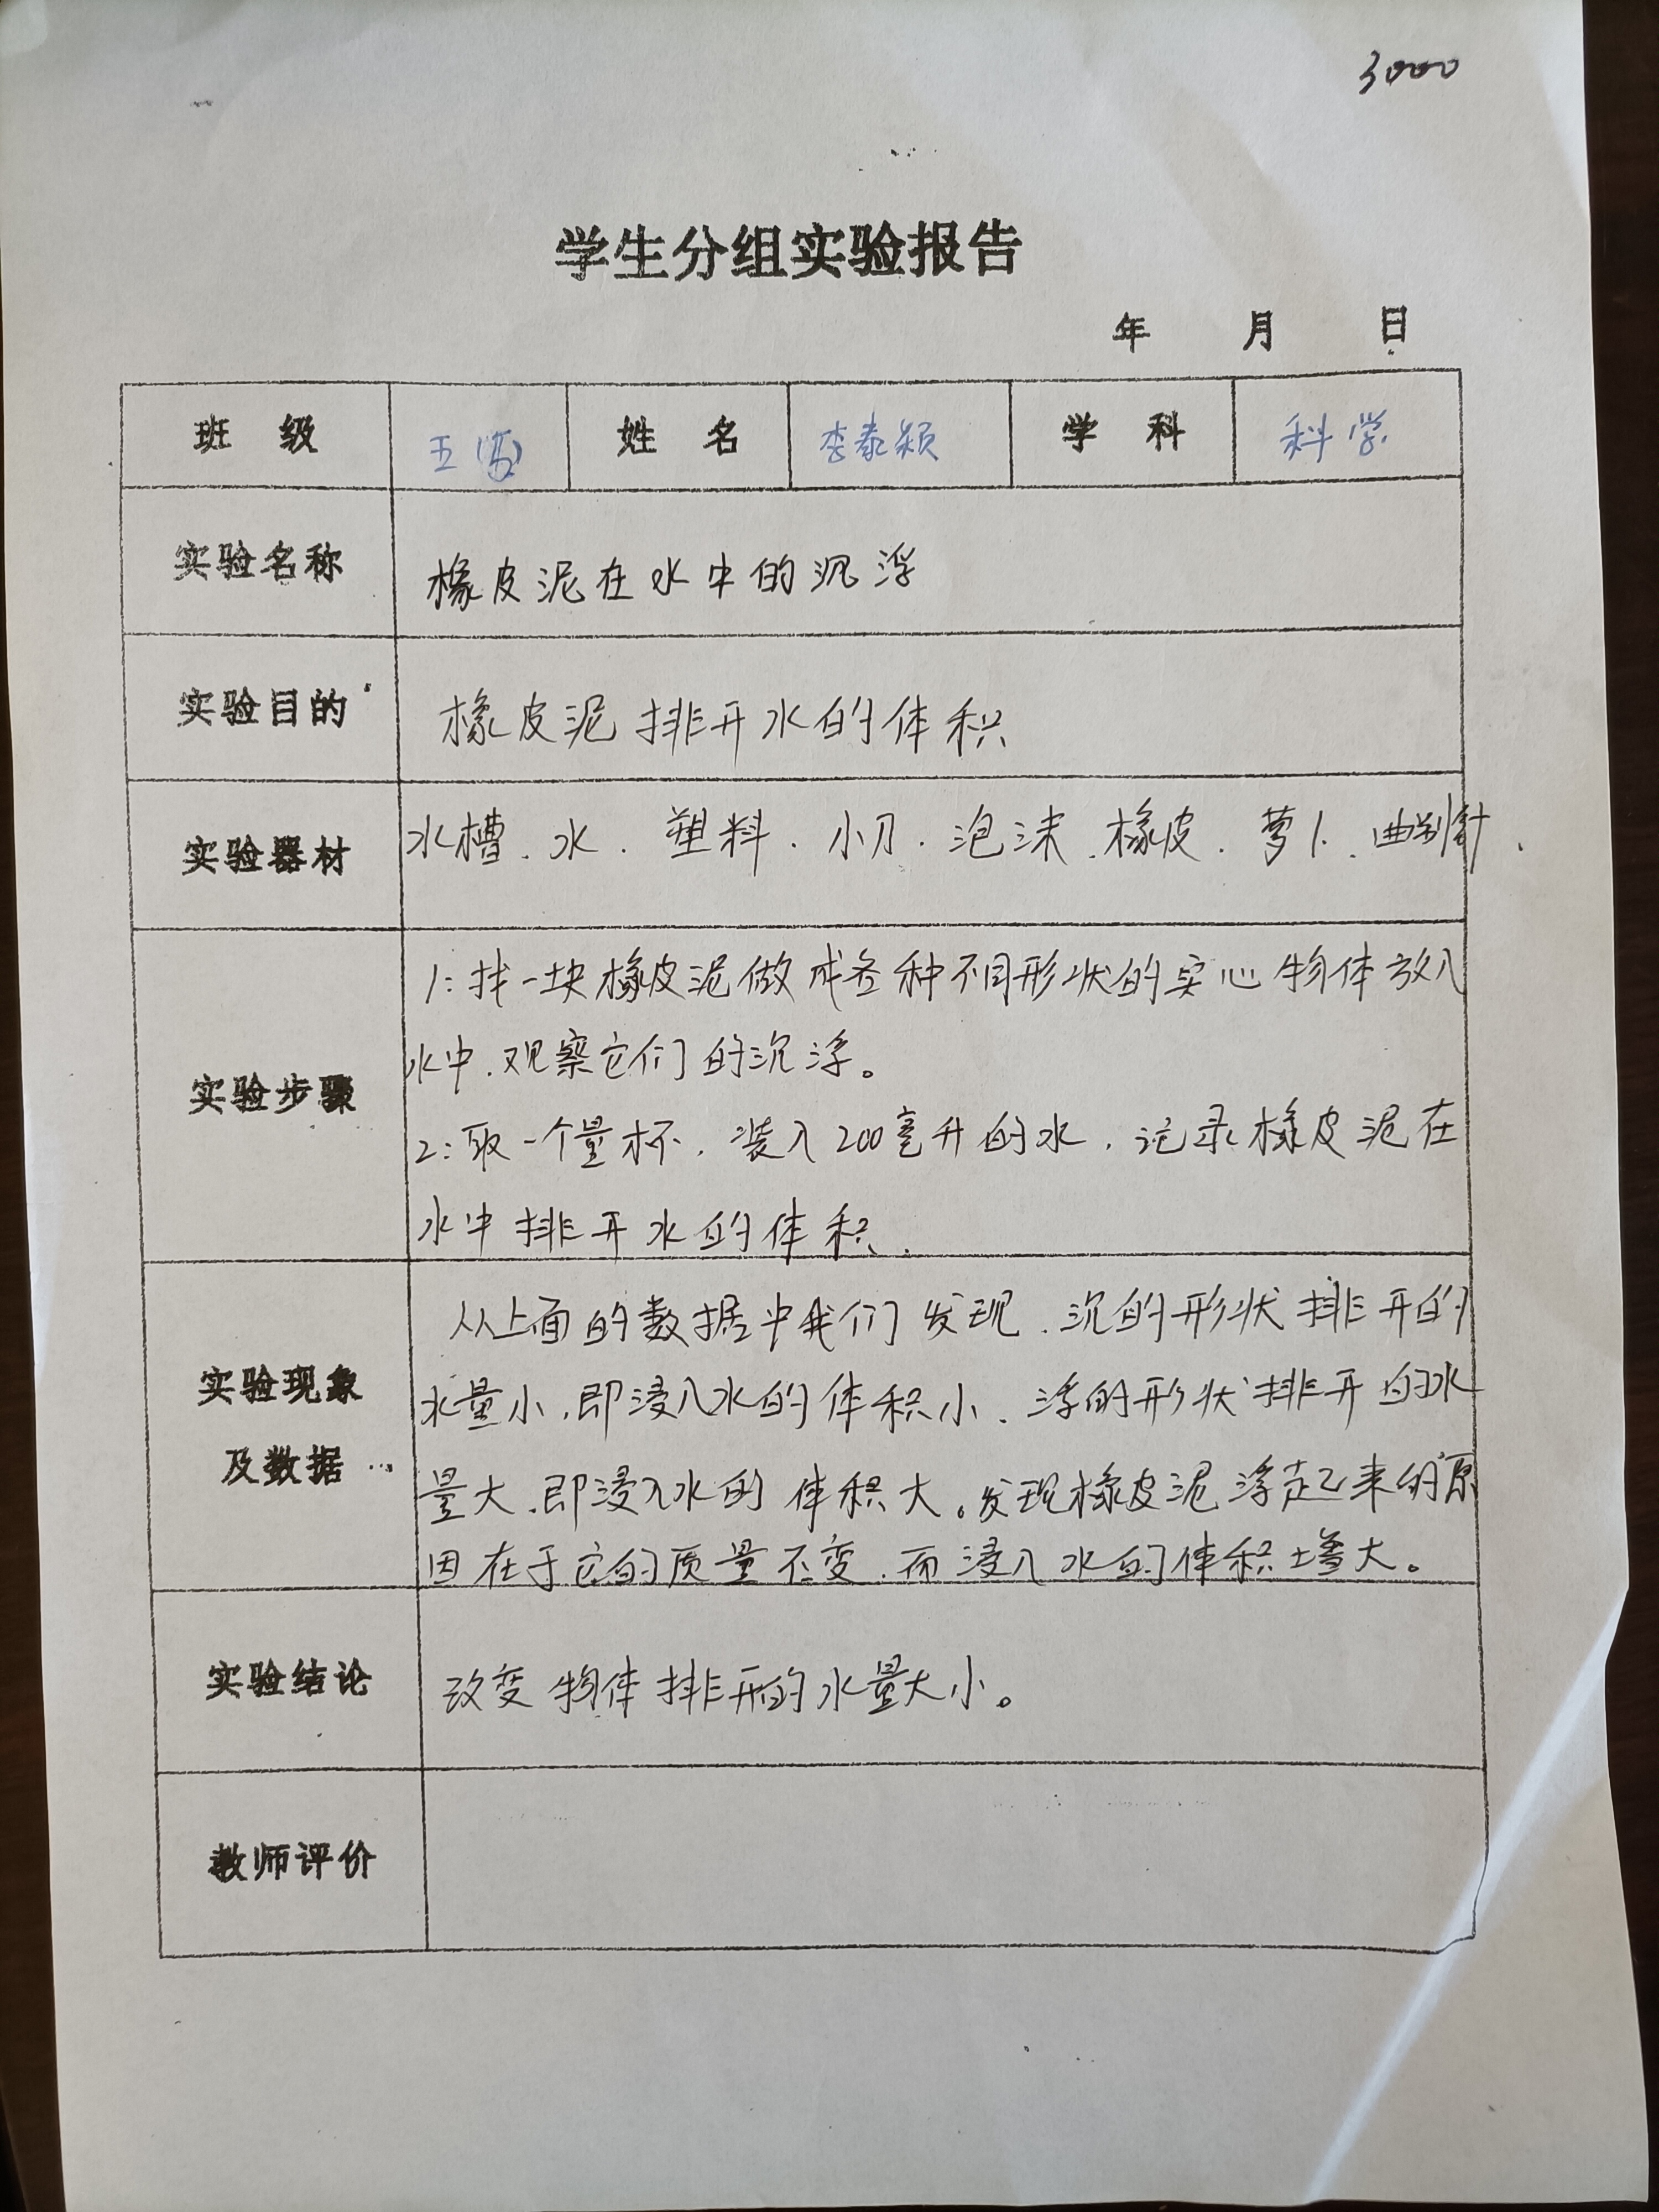 3000
学生分组实验报告
年 月 日
班 级 五(五) 姓 名 李泰颖 学 科 科学
实验名称 橡皮泥在水中的沉浮
实验目的 橡皮泥排开水的体积
实验器材 水槽.水.塑料.小刀.泡沫.橡皮.萝卜.曲别针.
实验步骤
1:找一块橡皮泥做成各种不同形状的实心物体放入
水中.观察它们的沉浮。
2:取一个量杯.装入200毫升的水.记录橡皮泥在
水中排开水的体积.
实验现象
及数据
从上面的数据中我们发现.沉的形状排开的
水量小.即浸入水的体积小.浮的形状排开的水
量大.即浸入水的体积大。发现橡皮泥浮起来的原
因在于它的质量不变.而浸入水的体积增大。
实验结论 改变物体排开的水量大小。
教师评价